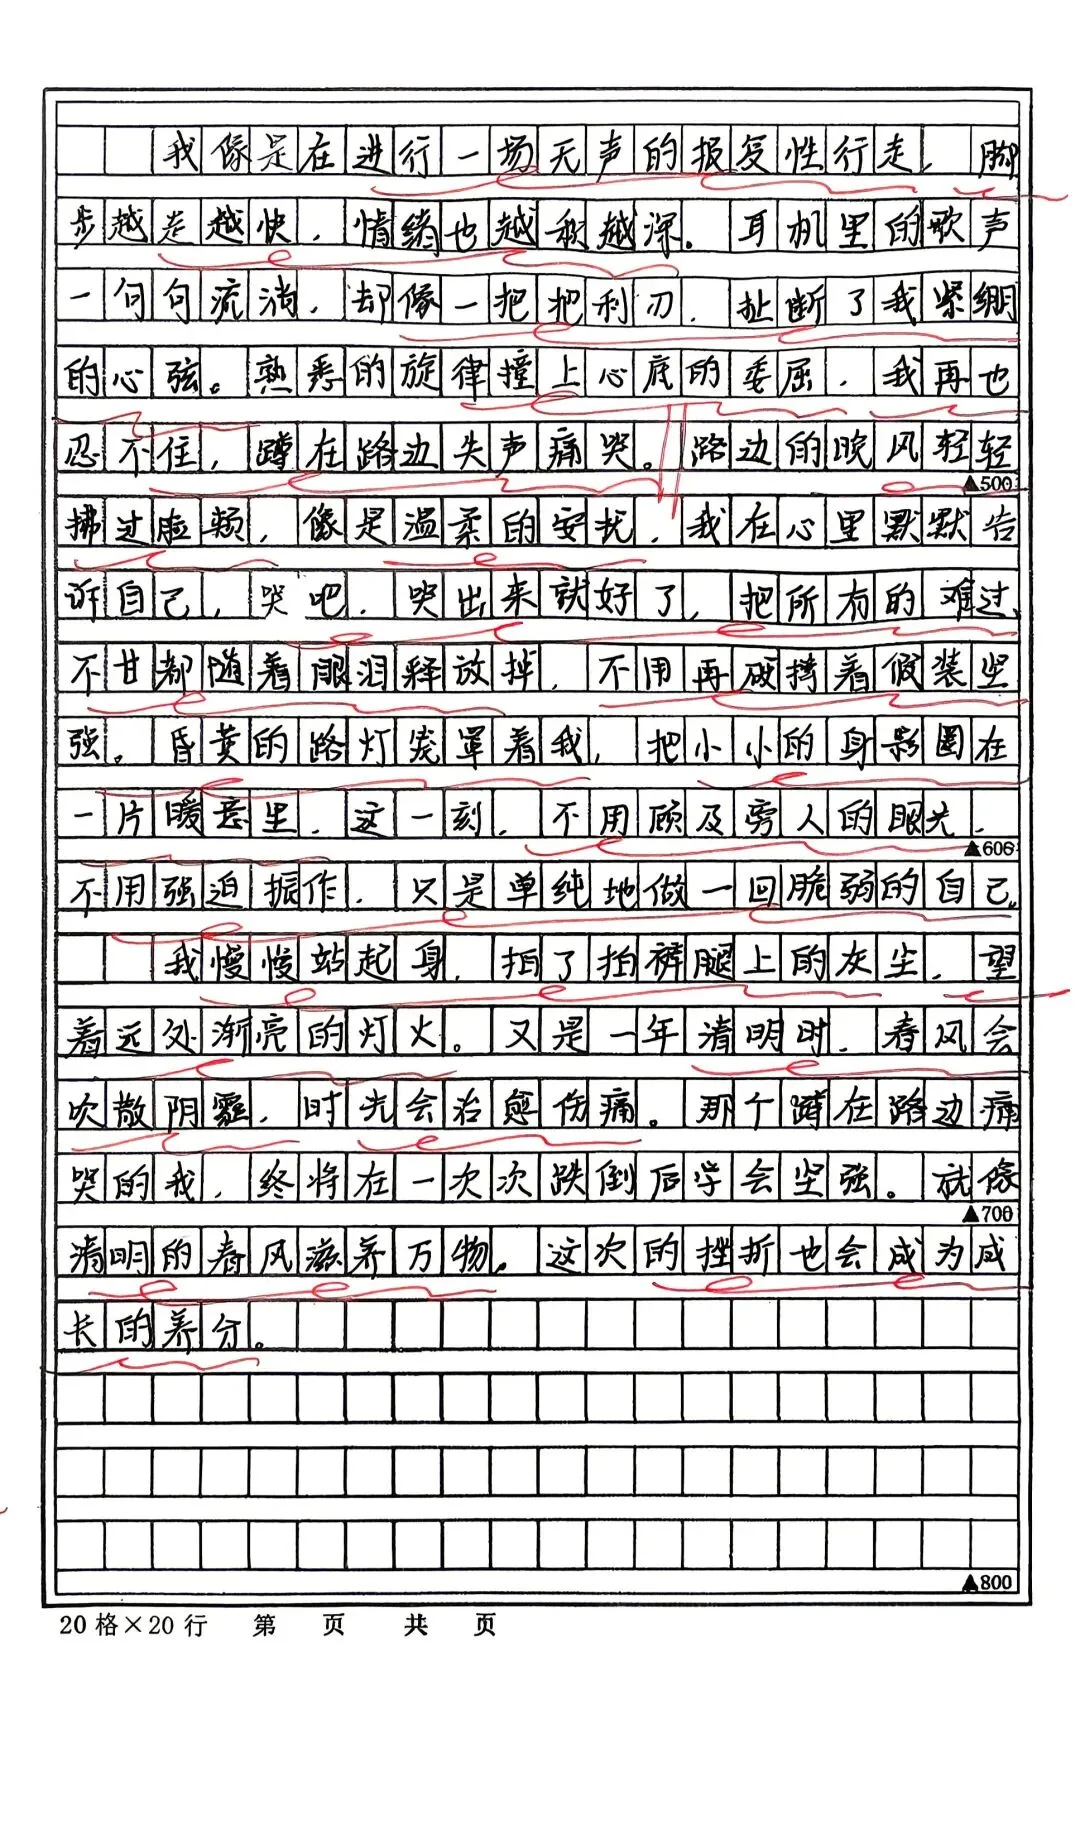 我像是在进行一场无声的报复性行走，脚
步越走越快，情绪也越积越深。耳机里的歌声
一句句流淌，却像一把把利刃，扯断了我紧绷
的心弦。熟悉的旋律撞上心底的委屈，我再也
忍不住，蹲在路边失声痛哭。路边的晚风轻轻
▲500
拂过脸颊，像是温柔的安抚，我在心里默默告
诉自己，哭吧，哭出来就好了，把所有的难过、
不甘都随着眼泪释放掉，不用再硬撑着假装坚
强。昏黄的路灯笼罩着我，把小小的身影圈在
一片暖意里，这一刻，不用顾及旁人的眼光，
▲600
不用强迫振作，只是单纯地做一回脆弱的自己。
我慢慢站起身，拍了拍裤腿上的灰尘，望
着远处渐亮的灯火。又是一年清明时，春风会
吹散阴霾，时光会治愈伤痛。那个蹲在路边痛
哭的我，终将在一次次跌倒后学会坚强。就像
▲700
清明的春风滋养万物，这次的挫折也会成为成
长的养分。
▲800
20格×20行 第 页 共 页